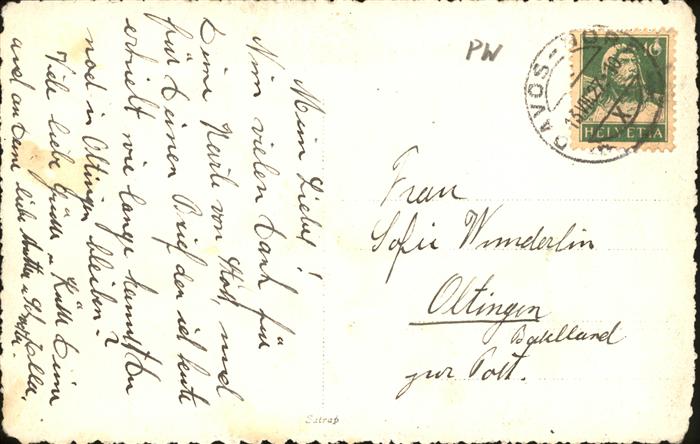 Mein Liebes!
Nim vielen Dank für
Deine Karte von Stoss, und
für Deinen Brief den ich heute
erhielt wie lange kannst Du
noch in Oltingen bleiben?
Viele liebe Grüsse u Küsse Deine
and an Deine liebe Mutter u
PW
DAVOS-DORF
13.VIII.27.-10
10
HELVETIA
Frau
Sofie Wunderlin
Oltingen
Baselland
zur Post.
Satrap